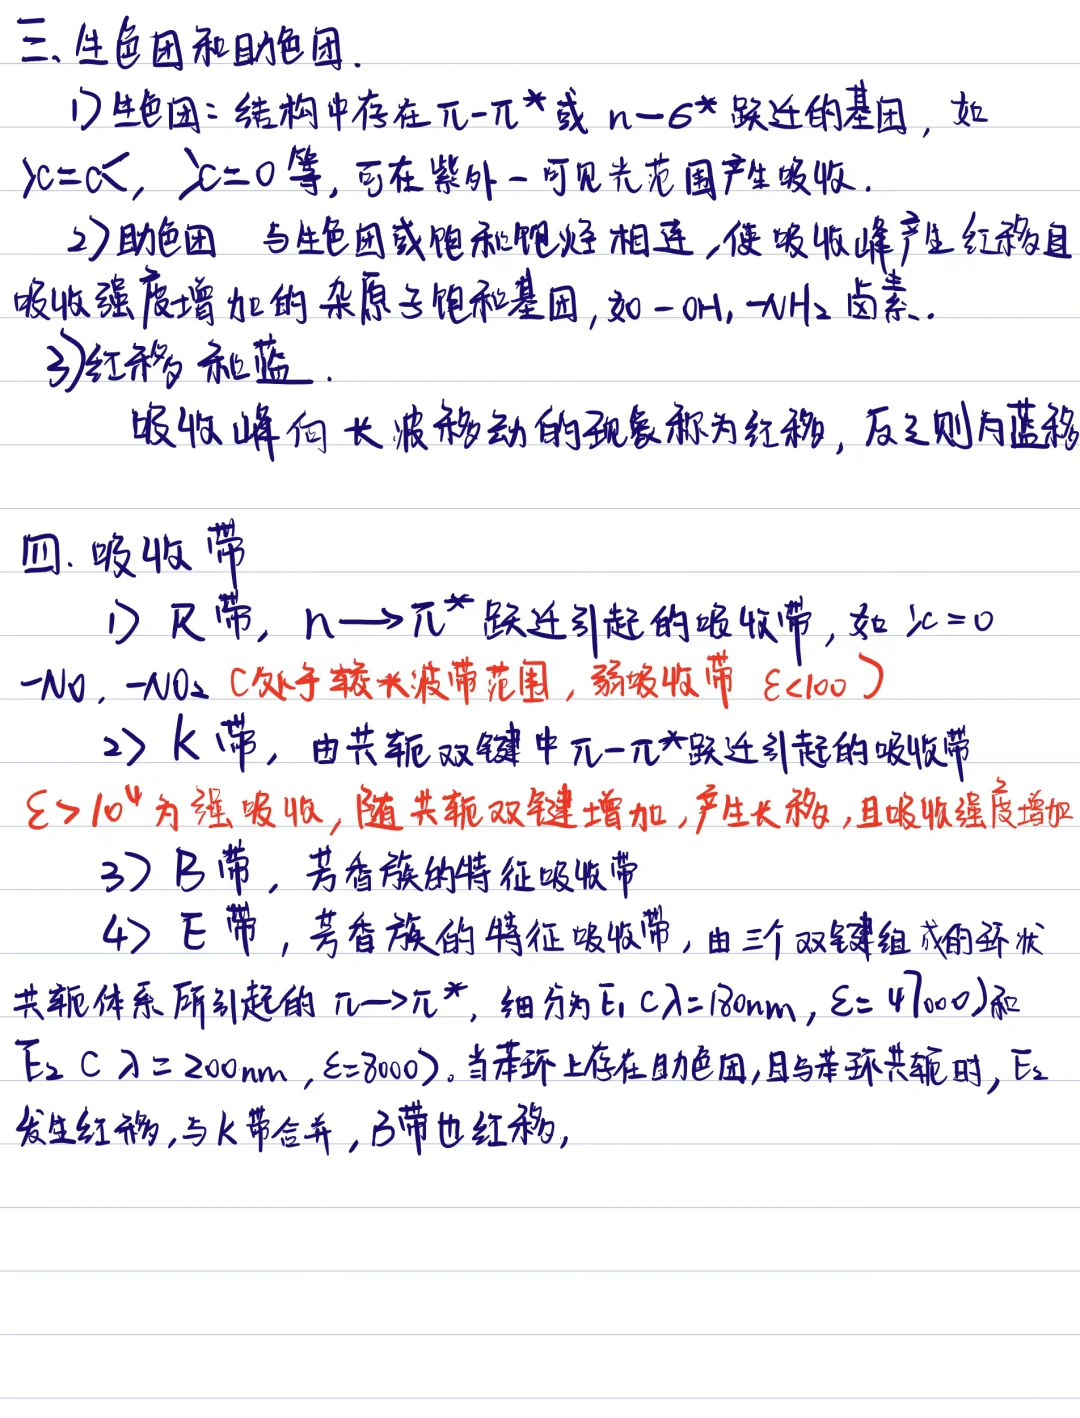 三、生色团和助色团.
1)生色团：结构中存在π-π*或 n-6*跃迁的基团，如
>C=C<，>C=O等，可在紫外-可见光范围产生吸收.
2)助色团 与生色团或饱和饱烃相连,使吸收峰产生红移且
吸收强度增加的杂原子饱和基团,如-OH,-NH₂卤素.
3)红移和蓝.
吸收峰向长波移动的现象称为红移,反之则为蓝移
四.吸收带
1) R带，n→π*跃迁引起的吸收带,如>C=O
-NO, -NO₂ (处于较长波带范围,弱吸收带 ε<100)
2) K带，由共轭双键中π-π*跃迁引起的吸收带
ε>10⁴为强吸收,随共轭双键增加,产生长移,且吸收强度增加
3) B带,芳香族的特征吸收带
4) E带,芳香族的特征吸收带,由三个双键组成的环状
共轭体系所引起的π→π*,细分为E₁(λ=180nm,ε=47000)和
E₂(λ=200nm,ε=8000)。当苯环上存在助色团,且与苯环共轭时,E₂
发生红移,与K带合并,B带也红移,